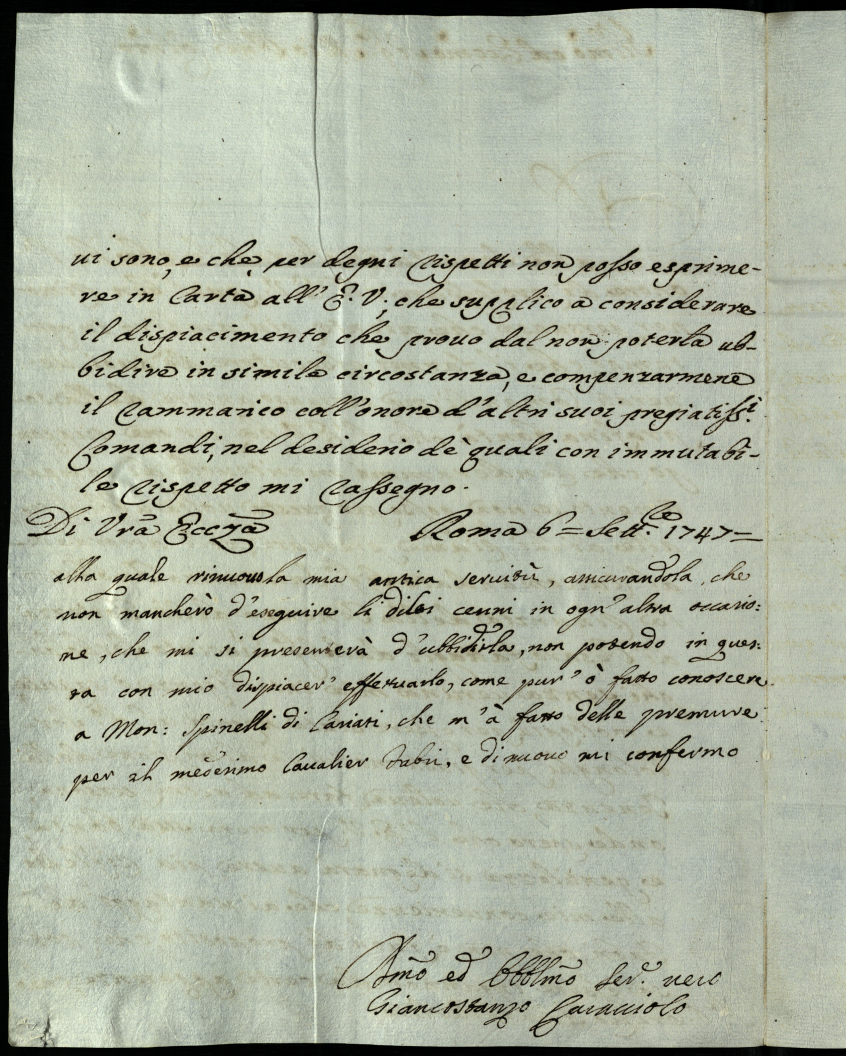 vi sono, e che per degni rispetti non posso esprime-
re in Carta all' E. V., che supplico a considerare
il dispiacimento che provo dal non poterla ub-
bidire in simile circostanza, e compenzarmene
il rammarico coll'onore d'altri suoi pregiatiss.i
Comandi, nel desiderio de' quali con immutabi-
le rispetto mi rassegno.
Di Vrā Eccza Roma 6= Sett.re 1747=
alla quale rinuovo la mia antica servitù, assicurandola, che
non mancherò d'eseguire li di lei cenni in ogn'altra occasio:
ne, che mi si presenterà d'ubbidirla, non potendo in ques:
ta con mio dispiacer' effettuarlo, come pur' ò fatto conoscere
a Mon: Spinelli di Cariati, che m'à fatto delle premure
per il medesimo Cavalier Fabii, e di nuovo mi confermo
ed Obblmo Ser.e vero
Giancostanzo Caracciolo